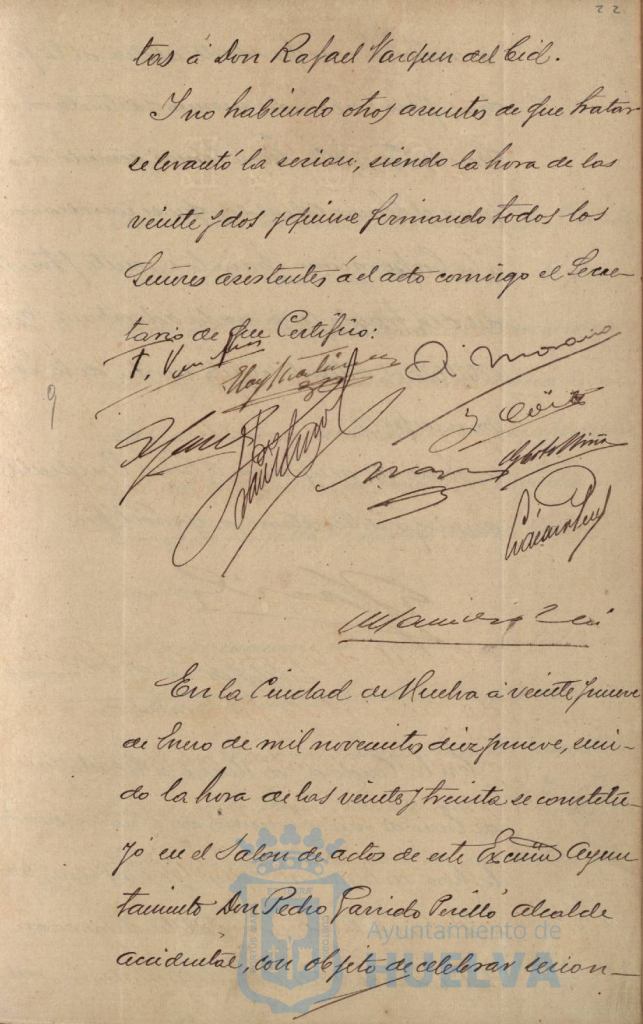 22
tas á Don Rafael Vazquez del Cid.
Y no habiendo otros asuntos de que tratar
se levantó la sesion, siendo la hora de las
veinte y dos y quince firmando todos los
Señores asistentes ál acto conmigo el Secre-
tario de que Certifico:
9
En la Ciudad de Huelva á veinte y nueve
de Enero de mil novecientos diez y nueve, sien-
do la hora de las veinte y treinta se constitu-
yó en el Salon de actos de este Excmo Ayun
tamiento Don Pedro Garrido Perelló Alcalde
Accidental, con objeto de celebrar sesion
Ayuntamiento de
HUELVA